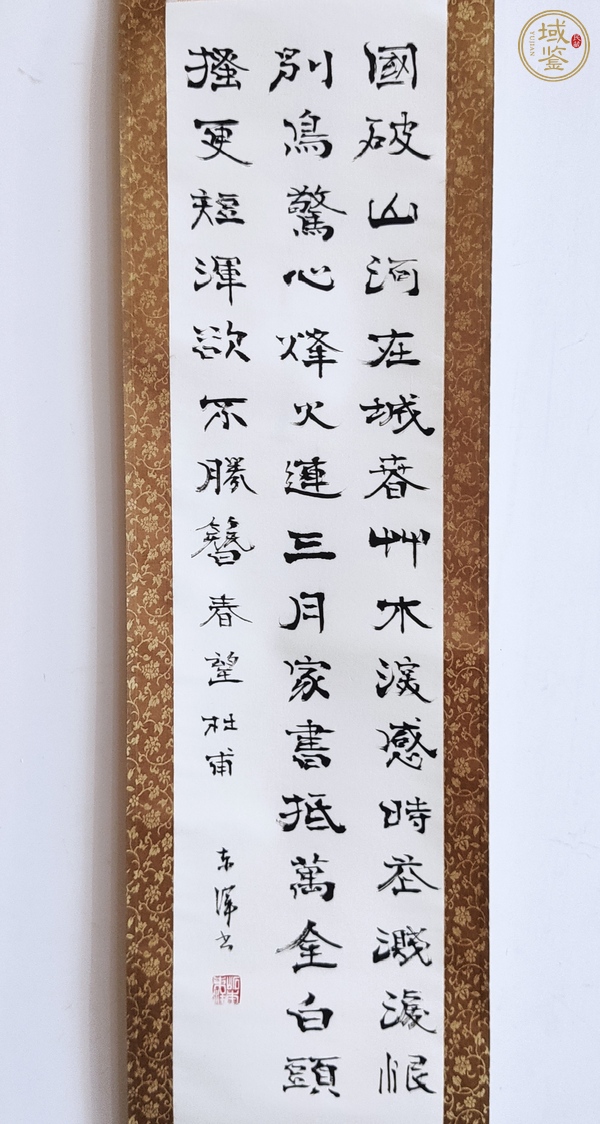 國破山河在城春艸木深感時花濺淚恨
別鳥驚心烽火連三月家書抵萬金白頭
搔更短渾欲不勝簪春望杜甫
东渾书
域鉴
YUJIAN